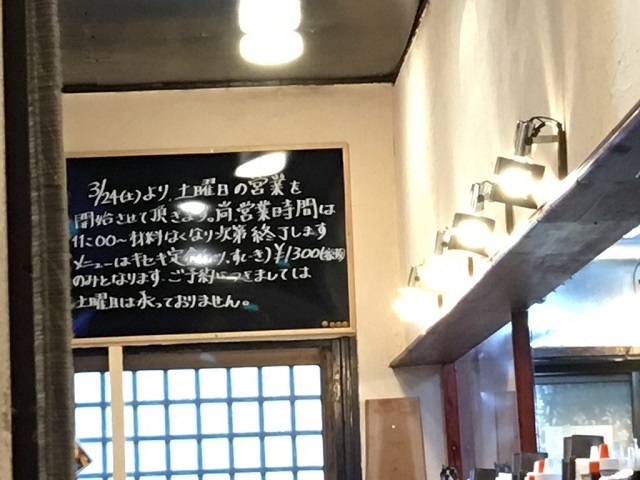 3/24(土)より、土曜日の営業を
開始させて頂きます。尚、営業時間は
11:00〜材料なくなり次第終了します
メニューはキセキ定 ¥1300(税込)
のみとなります。ご予約につきましては
土曜日は承っておりません。